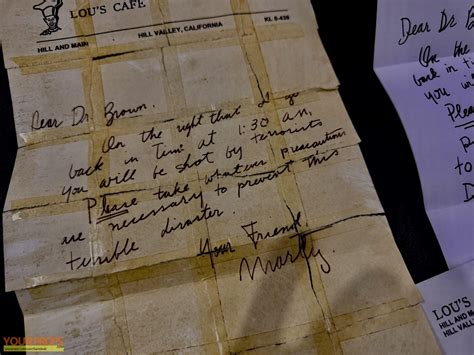 LOU'S CAFE
HILL AND MAIN HILL VALLEY, CALIFORNIA
Dear Dr. Brown,
On the night that I go
back in time at 1:30 AM,
you will be shot by terrorists.
Please take whatever precautions
are necessary to prevent this
terrible disaster.
Your Friend,
Marty.
Dear Dr. B
On the
back in t
you wi
Plea
LOU'S
HILL AND M
HILL VALLEY,